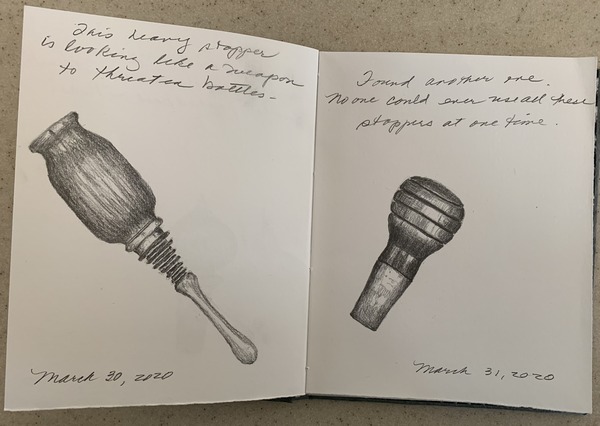 This heavy stopper
is looking like a weapon
to threaten bottles-
March 30, 2020
Found another one.
No one could ever use all these
stoppers at one time.
March 31, 2020